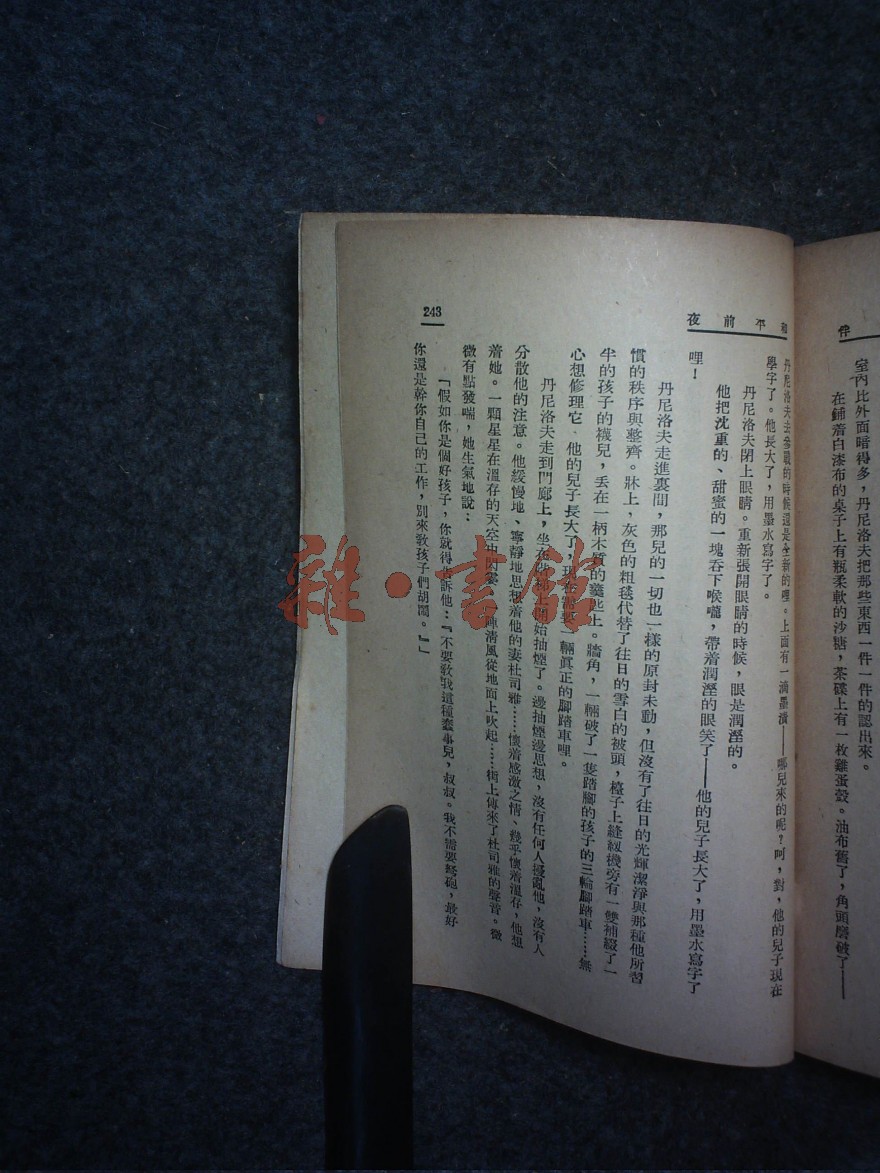 伴
室內比外面暗得多，丹尼洛夫把那些東西一件一件的認出來。
在鋪着白漆布的桌子上有瓶柔軟的沙糖，茶碟上有一枚雞蛋殼。油布舊了，角頭磨破了——
和平前夜
丹尼洛夫去參戰的時候還是全新的哩。上面有一滴墨漬——哪兒來的呢？呵，對，他的兒子現在
學字了。他長大了，用墨水寫字了。
丹尼洛夫閉上眼睛。重新張開眼睛的時候，眼是潤溼的。
他把沈重的、甜蜜的一塊吞下喉嚨，帶着潤溼的眼笑了——他的兒子長大了，用墨水寫字了
哩！
丹尼洛夫走進裏間，那兒的一切也一樣的原封未動，但沒有了往日的光輝潔淨與那種他所習
慣的秩序與整齊。牀上，灰色的粗毯代替了往日的雪白的被頭，檯子上縫紉機旁有一雙補綴了一
半的孩子的襪兒，丢在一柄木質的羹匙上。牆角，一輛破了一隻踏脚的孩子的三輪脚踏車……無
心想修理它 他的兒子長大了，現在需要一輛眞正的脚踏車哩。
丹尼洛夫走到門廊上，坐在 開始抽煙了。邊抽煙邊思想，沒有任何人擾亂他，沒有人
分散他的注意。他緩慢地、寧靜地思想着他的妻杜司雅……懷着感激之情、幾乎懷着溫存，他想
着她。一顆星星在溫存的天空中閃 陣清風從地面上吹起……街上傳來了杜司雅的聲音。微
微有點發喘，她生氣地說：
「假如你是個好孩子，你就得告訴他：『不要敎我這種蠢事兒，叔叔。我不需要弩砲，最好
你還是幹你自己的工作，別來敎孩子們胡鬧。』」
243
雜·書館